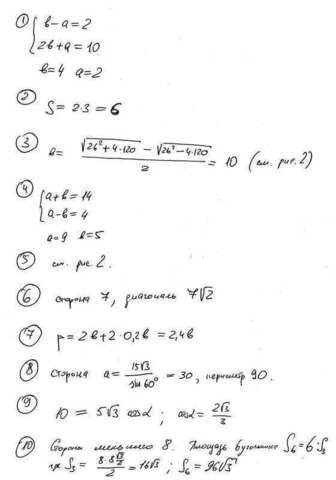 ① { b-a=2
2b+a=10
b=4 a=2
② S= 2·3 = 6
③ a= (√(26²+4·120) - √(26²-4·120))/2 = 10 (см. рис. 2)
④ { a+b=14
a-b=4
a=9 b=5
⑤ см. рис 2.
⑥ сторона 7, диагональ 7√2
⑦ p=2b+2·0,2b=2,4b
⑧ Сторона a= 15√3/sin 60° = 30, периметр 90.
⑨ 10 = 5√3 cosα ; cosα= 2√3/3
⑩ Сторона 8. Площадь 6угольника S₆=6·S₃
где S₃= (8·8√3/2)/2 =16√3 ; S₆=96√3